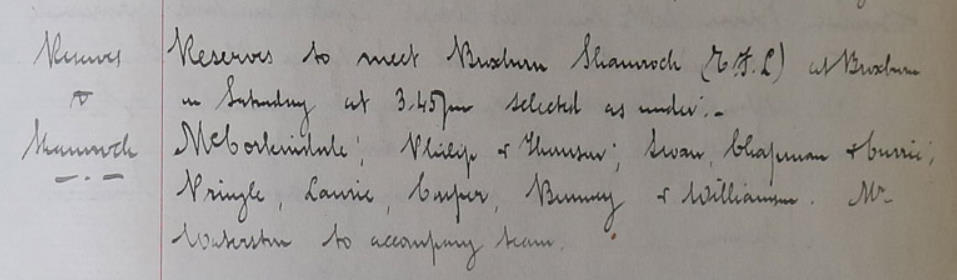 Reserves Reserves to meet Broxburn Shamrock (E.F.L) at Broxburn
v on Saturday at 3.45pm selected as under:-
Shamrock McCorkindale; Philip & Thomson; Swan, Chapman & Currie;
Pringle, Laurie, Cowper, Binney & Williamson. Mr
Waterston to accompany team.